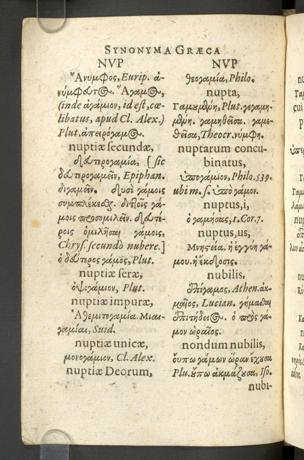 SYNONYMA GRÆCA
NVP
Ἄνυμφος, Eurip. ἀ-
νύμφευτος. Ἄγαμος,
(inde ἀγάμιον, id est, cæ-
libatus, apud Cl. Alex.)
Plut. ἀπειρόγαμος.
nuptiæ secundæ,
δευτερογαμία. [sic
δευτερογαμεῖν, Epiphan.
διγαμεῖν. δυσὶ γάμοις
συμπλέκεσθαι.
Chrys. secundò nubere.]
ὁ δεύτερος γάμος, Plut.
nuptiæ seræ,
ὀψιγάμιον, Plut.
nuptiæ impuræ,
Ἀθεμιτογαμία. Μιαι-
γαμίαι, Suid.
nuptiæ unicæ,
μονογάμιον, Cl. Alex.
nuptiæ Deorum,
NVP
θεογαμία, Philo.
nupta,
Γαμουμένη, Plut. γεγαμη-
μένη. γαμηθεῖσα. γαμε-
θεῖσα, Theocr. νύμφη.
nuptarum concu-
binatus,
ὑπογάμιον, Philo. 539.
ubi m. s. ὑπόγαμον.
nuptus, i,
ὁ γαμήσας, 1. Cor. 7.
nuptus, us,
Μνηστεία. ἡ ἐγγύη γά-
μου. ἡ ἔκδοσις.
nubilis,
ἐπίγαμος, Athen. ἀκ-
μαῖος, Lucian.
ἐπιτήδειος. ὁ πρὸς γά-
μον ὡραῖος.
nondum nubilis,
οὔπω γάμων ὥραν ἔχουσα
Plu. οὔπω ἀκμάζουσα, Iso.
nubi-